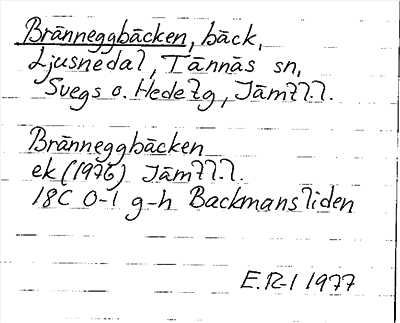 Bränneggbäcken, bäck,
Ljusnedal, Tännäs sn,
Svegs o. Hede tg, Jämtl.l.
Bränneggbäcken
ek (1976) Jämtl.l.
18C 0-1 g-h Backmansliden
E.R-l 1977